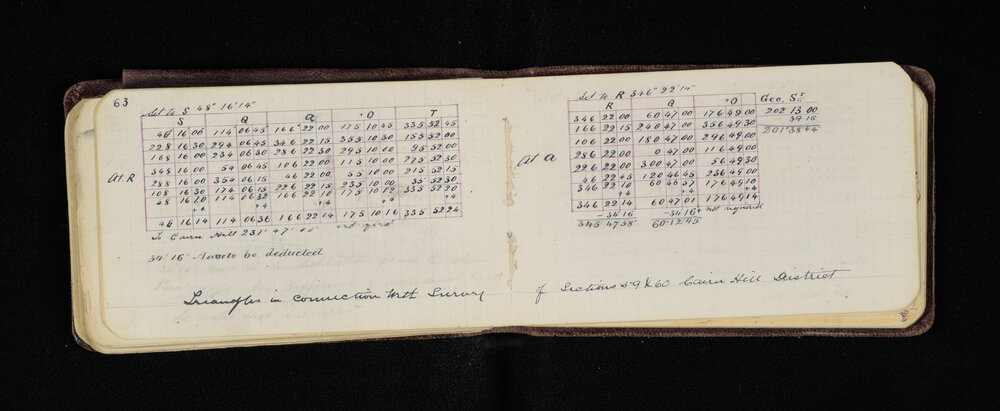 63
Set to S 48° 16' 14"
S Q a °O T
48 16 00 114 06 45 166 22 00 175 10 45 335 52 45
228 16 30 294 06 45 346 22 15 355 10 30 155 52 00
168 16 00 234 06 30 286 22 30 295 10 00 95 52 00
348 16 00 54 06 45 106 22 00 115 10 00 275 52 30
288 16 00 354 06 15 46 22 00 55 10 00 215 52 15
108 16 30 174 06 15 226 22 15 235 10 00 35 52 30
48 16 10 114 06 32 166 22 10 175 10 12 335 52 20
+4 +4 +4 +4 +4
48 16 14 114 06 36 166 22 14 175 10 16 335 52 24
At R
To Cairn Hill 231° 47' 00" + not reqd
34' 16" has to be deducted
Set to R 346° 22' 14"
R Q °O
346 22 00 60 47 00 176 49 00
166 22 15 240 47 00 356 49 30
106 22 00 180 47 00 296 49 00
286 22 00 0 47 00 116 49 00
226 22 00 300 47 00 56 49 30
46 22 45 120 46 45 236 49 00
346 22 10 60 46 57 176 49 10
+4 +4 +4
346 22 14 60 47 01 176 49 14
– 34 16 – 34 16 + not required
345 47 58 60 12 45
At a
Geo. St
202 13 00
34 16
201° 38 44
Triangles in connection with Survey of Sections 59 & 60 Cairn Hill District